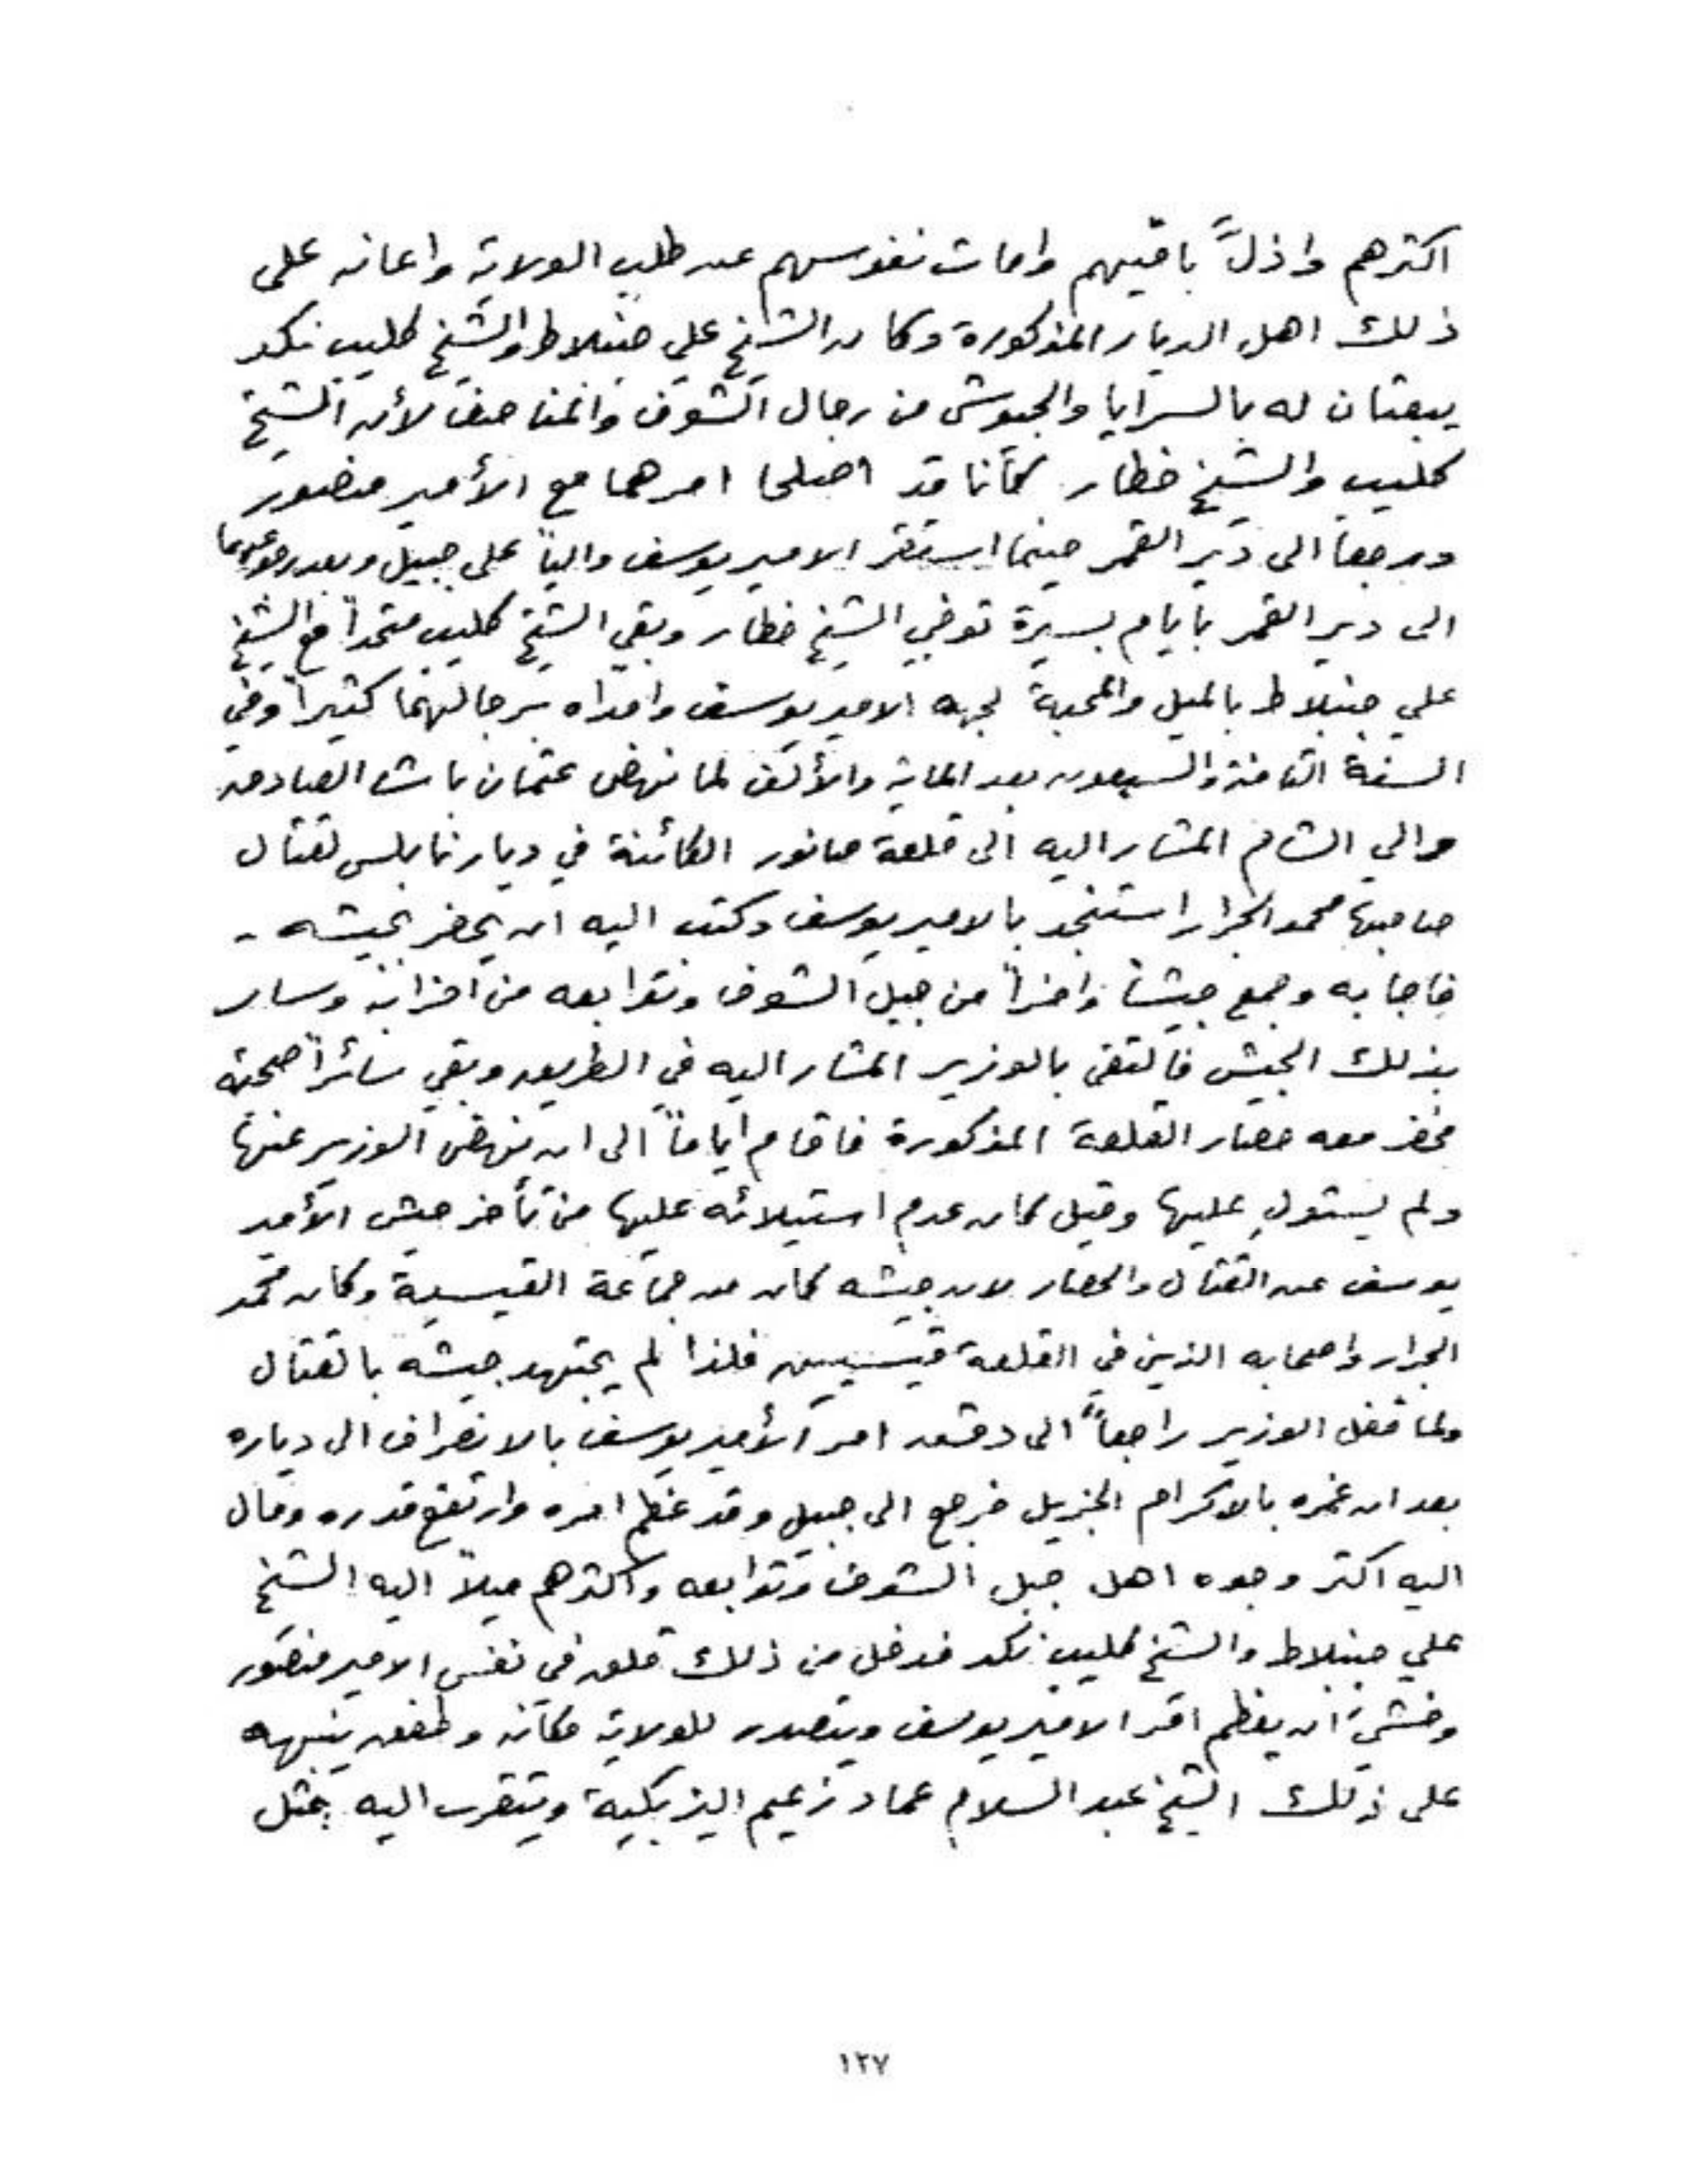 اكثرهم واذلّ باقيهم وامات نفوسهم عن طلب الولاية واعانه على
ذلك اهل الديار المذكورة وكان الشيخ علي جنبلاط والشيخ كليب نكد
يبعثان له بالسرايا والجيوش من رجال الشوف والمناصف لأن الشيخ
كليب والشيخ خطار كانا قد اصلحا امرهما مع الأمير منصور
ورجعا الى دير القمر حينما استقر الامير يوسف والياً على جبيل وبعد رجوعهما
الى دير القمر بايام يسيرة توفي الشيخ خطار وبقي الشيخ كليب متحداً مع الشيخ
علي جنبلاط بالميل والمحبة لجهه الامير يوسف وامداه برجالهما كثيراً وفي
السنة الثامنة والسبعون بعد الماية والألف لما نهض عثمان باشا الصادق
والي الشام المشار اليه الى قلعة صانور الكائنة في ديار نابلس لقتال
صاحبها محمد الجرار استنجد بالامير يوسف وكتب اليه ان يحضر بجيشه -
فاجابه وجمع جيشاً وافراً من جبل الشوف وتوابعه من احزابه وسار
بذلك الجيش فالتقى بالوزير المشار اليه في الطريق وبقي سائراً صحبته
فحضر معه حصار القلعة المذكورة فاقام اياماً الى ان نهض الوزير عنها
ولم يستولِ عليها وقيل كان عدم استيلائه عليها من تأخر جيش الأمير
يوسف عن القتال والحصار لان جيشه كان من جماعة القيسية وكان محمد
الجرار واصحابه الذين في القلعة قيسيين فلذا لم يجتهد جيشه بالقتال
ولما قفل الوزير راجعاً الى دمشق امر الأمير يوسف بالانصراف الى دياره
بعد ان غمره بالاكرام الجزيل فرجع الى جبيل وقد عظم امره وارتفع قدره ومال
اليه اكثر وجوه اهل جبل الشوف وتوابعه واكثرهم ميلاً اليه الشيخ
علي جنبلاط والشيخ كليب نكد فدخل من ذلك قلق في نفس الامير منصور
وخشي ان يعظم امر الامير يوسف ويتصدر للولاية مكانه وطفق ينبهه
على ذلك الشيخ عبد السلام عماد زعيم اليزبكية ويتقرب اليه بمثل
١٢٧